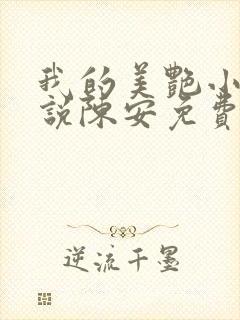 我的美艷小
說陳安免費
逆流千墨